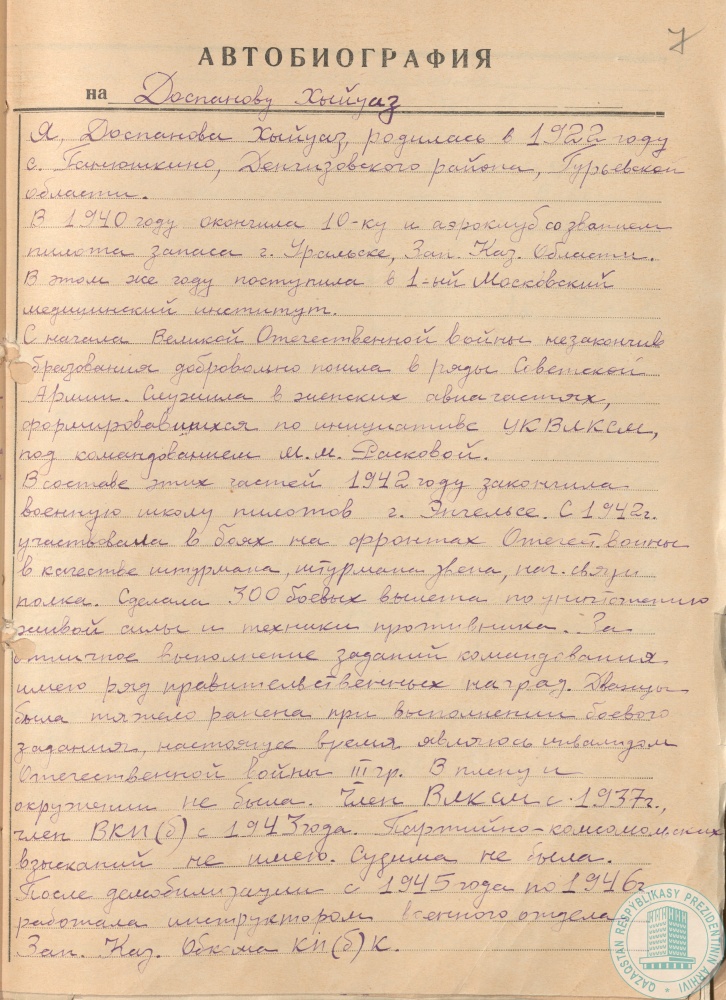 7
АВТОБИОГРАФИЯ
на Доспанову Хыйуаз
Я, Доспанова Хыйуаз, родилась в 1922 году
с. Ганюшкино, Денгизовского района, Гурьевской
области.
В 1940 году окончила 10-ку и аэроклуб со званием
пилота запаса г. Уральске, Зап. Каз. Области.
В этом же году поступила в 1-ый Московский
медицинский институт.
С начала Великой Отечественной войны незакончив
образования добровольно пошла в ряды Советской
Армии. Служила в женских авиачастях,
формировавшихся по инициативе ЦК ВЛКСМ,
под командованием М.М. Расковой.
В составе этих частей 1942 году закончила
военную школу пилотов г. Энгельсе. С 1942г.
участвовала в боях на фронтах Отечест. войны
в качестве штурмана, штурмана звена, нач. связи
полка. Сделала 300 боевых вылета по уничтожению
живой силы и техники противника. За
отличное выполнение заданий командования
имею ряд правительственных наград. Дважды
была тяжело ранена при выполнении боевого
задания, настоящее время являюсь инвалидом
Отечественной войны III гр. В плену и
окружении не была. Член ВЛКСМ с 1937г.,
член ВКП(б) с 1943 года. Партийно-комсомольских
взысканий не имею. Судима не была.
После демобилизации с 1945 года по 1946г
работала инструктором военного отдела
Зап. Каз. Обкома КП(б)К.
QAZAQSTAN RESPÝBLIKASY PREZIDENTINIŃ ARHIVI